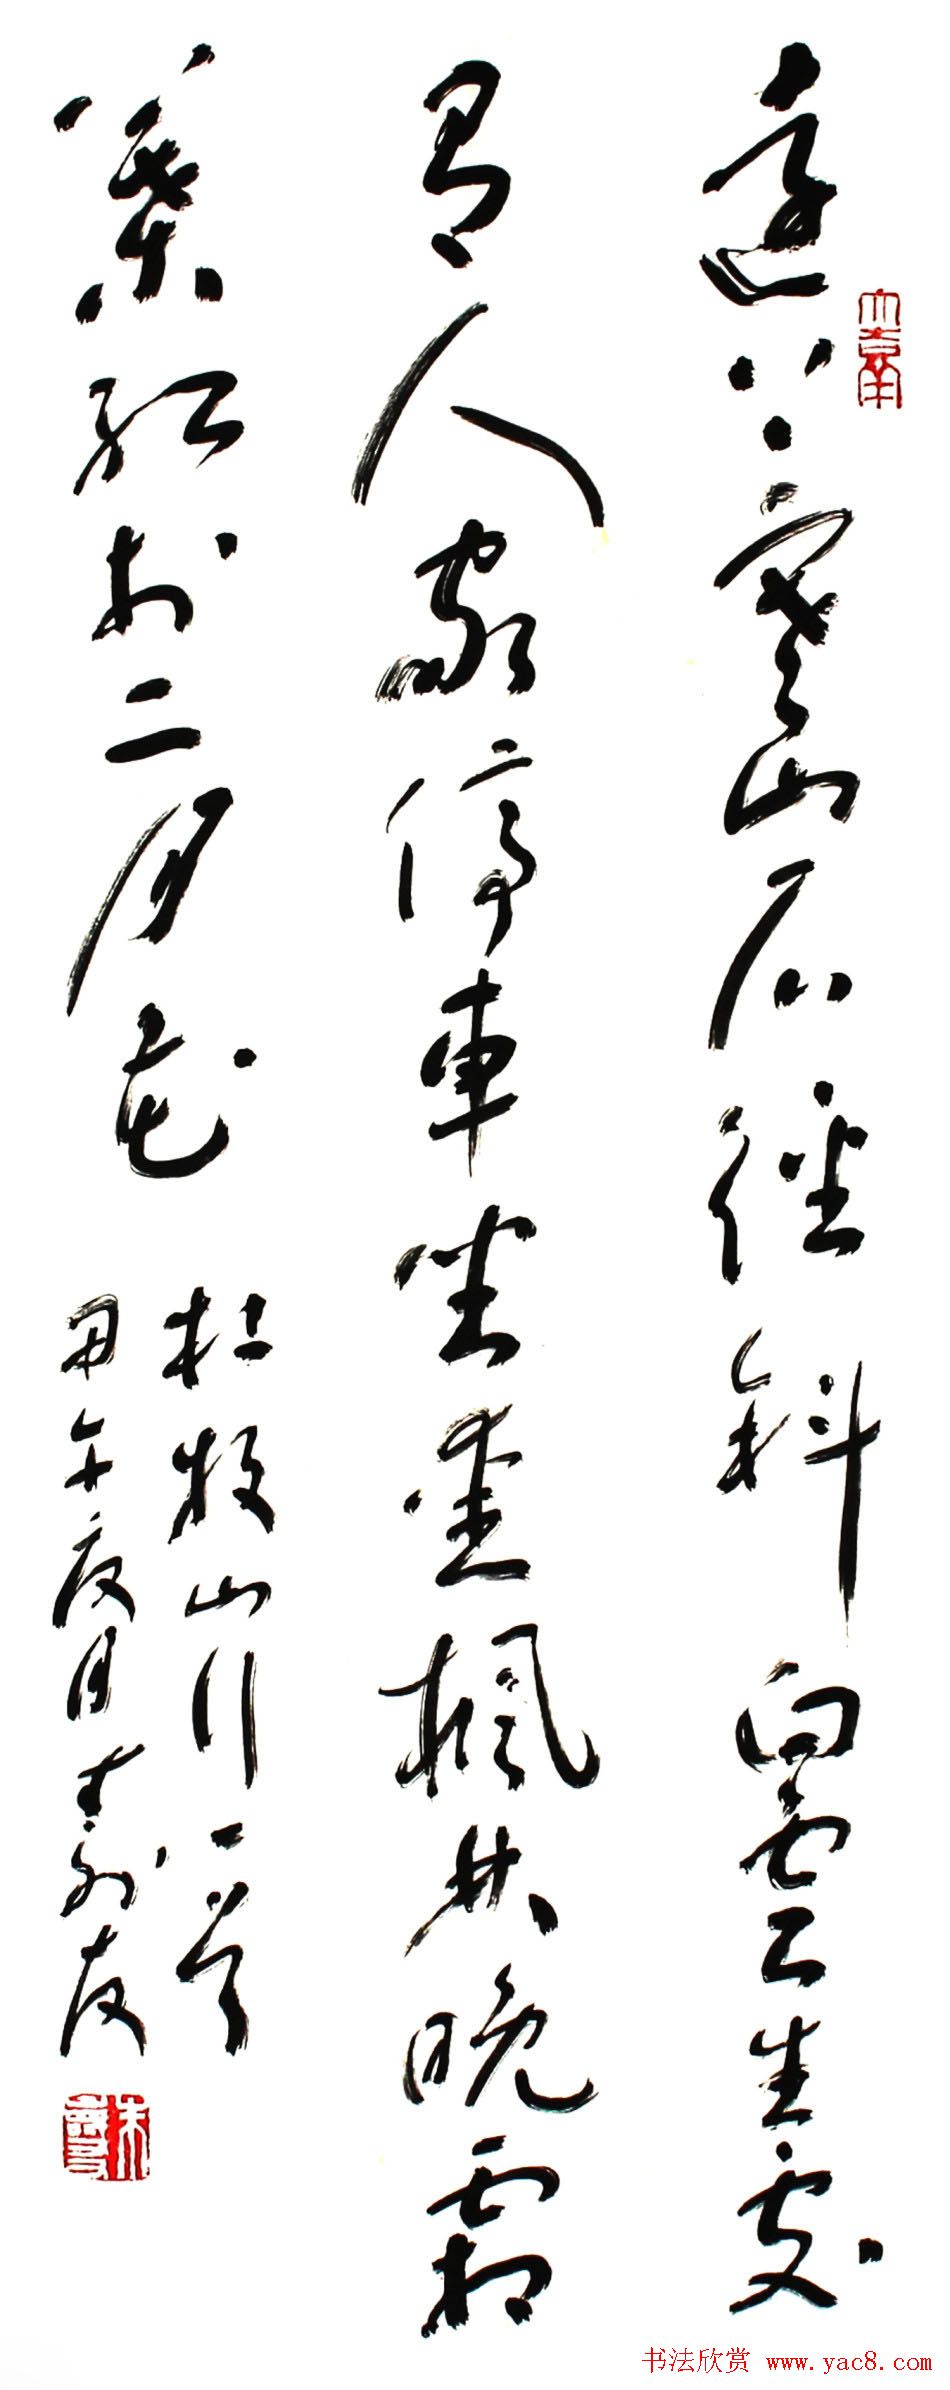 遠上寒山石徑斜白雲生處
有人家停車坐愛楓林晚霜
葉紅於二月花
杜牧山行一首
甲午夏月朱壽友
大吉羊
书法欣赏 www.yac8.com